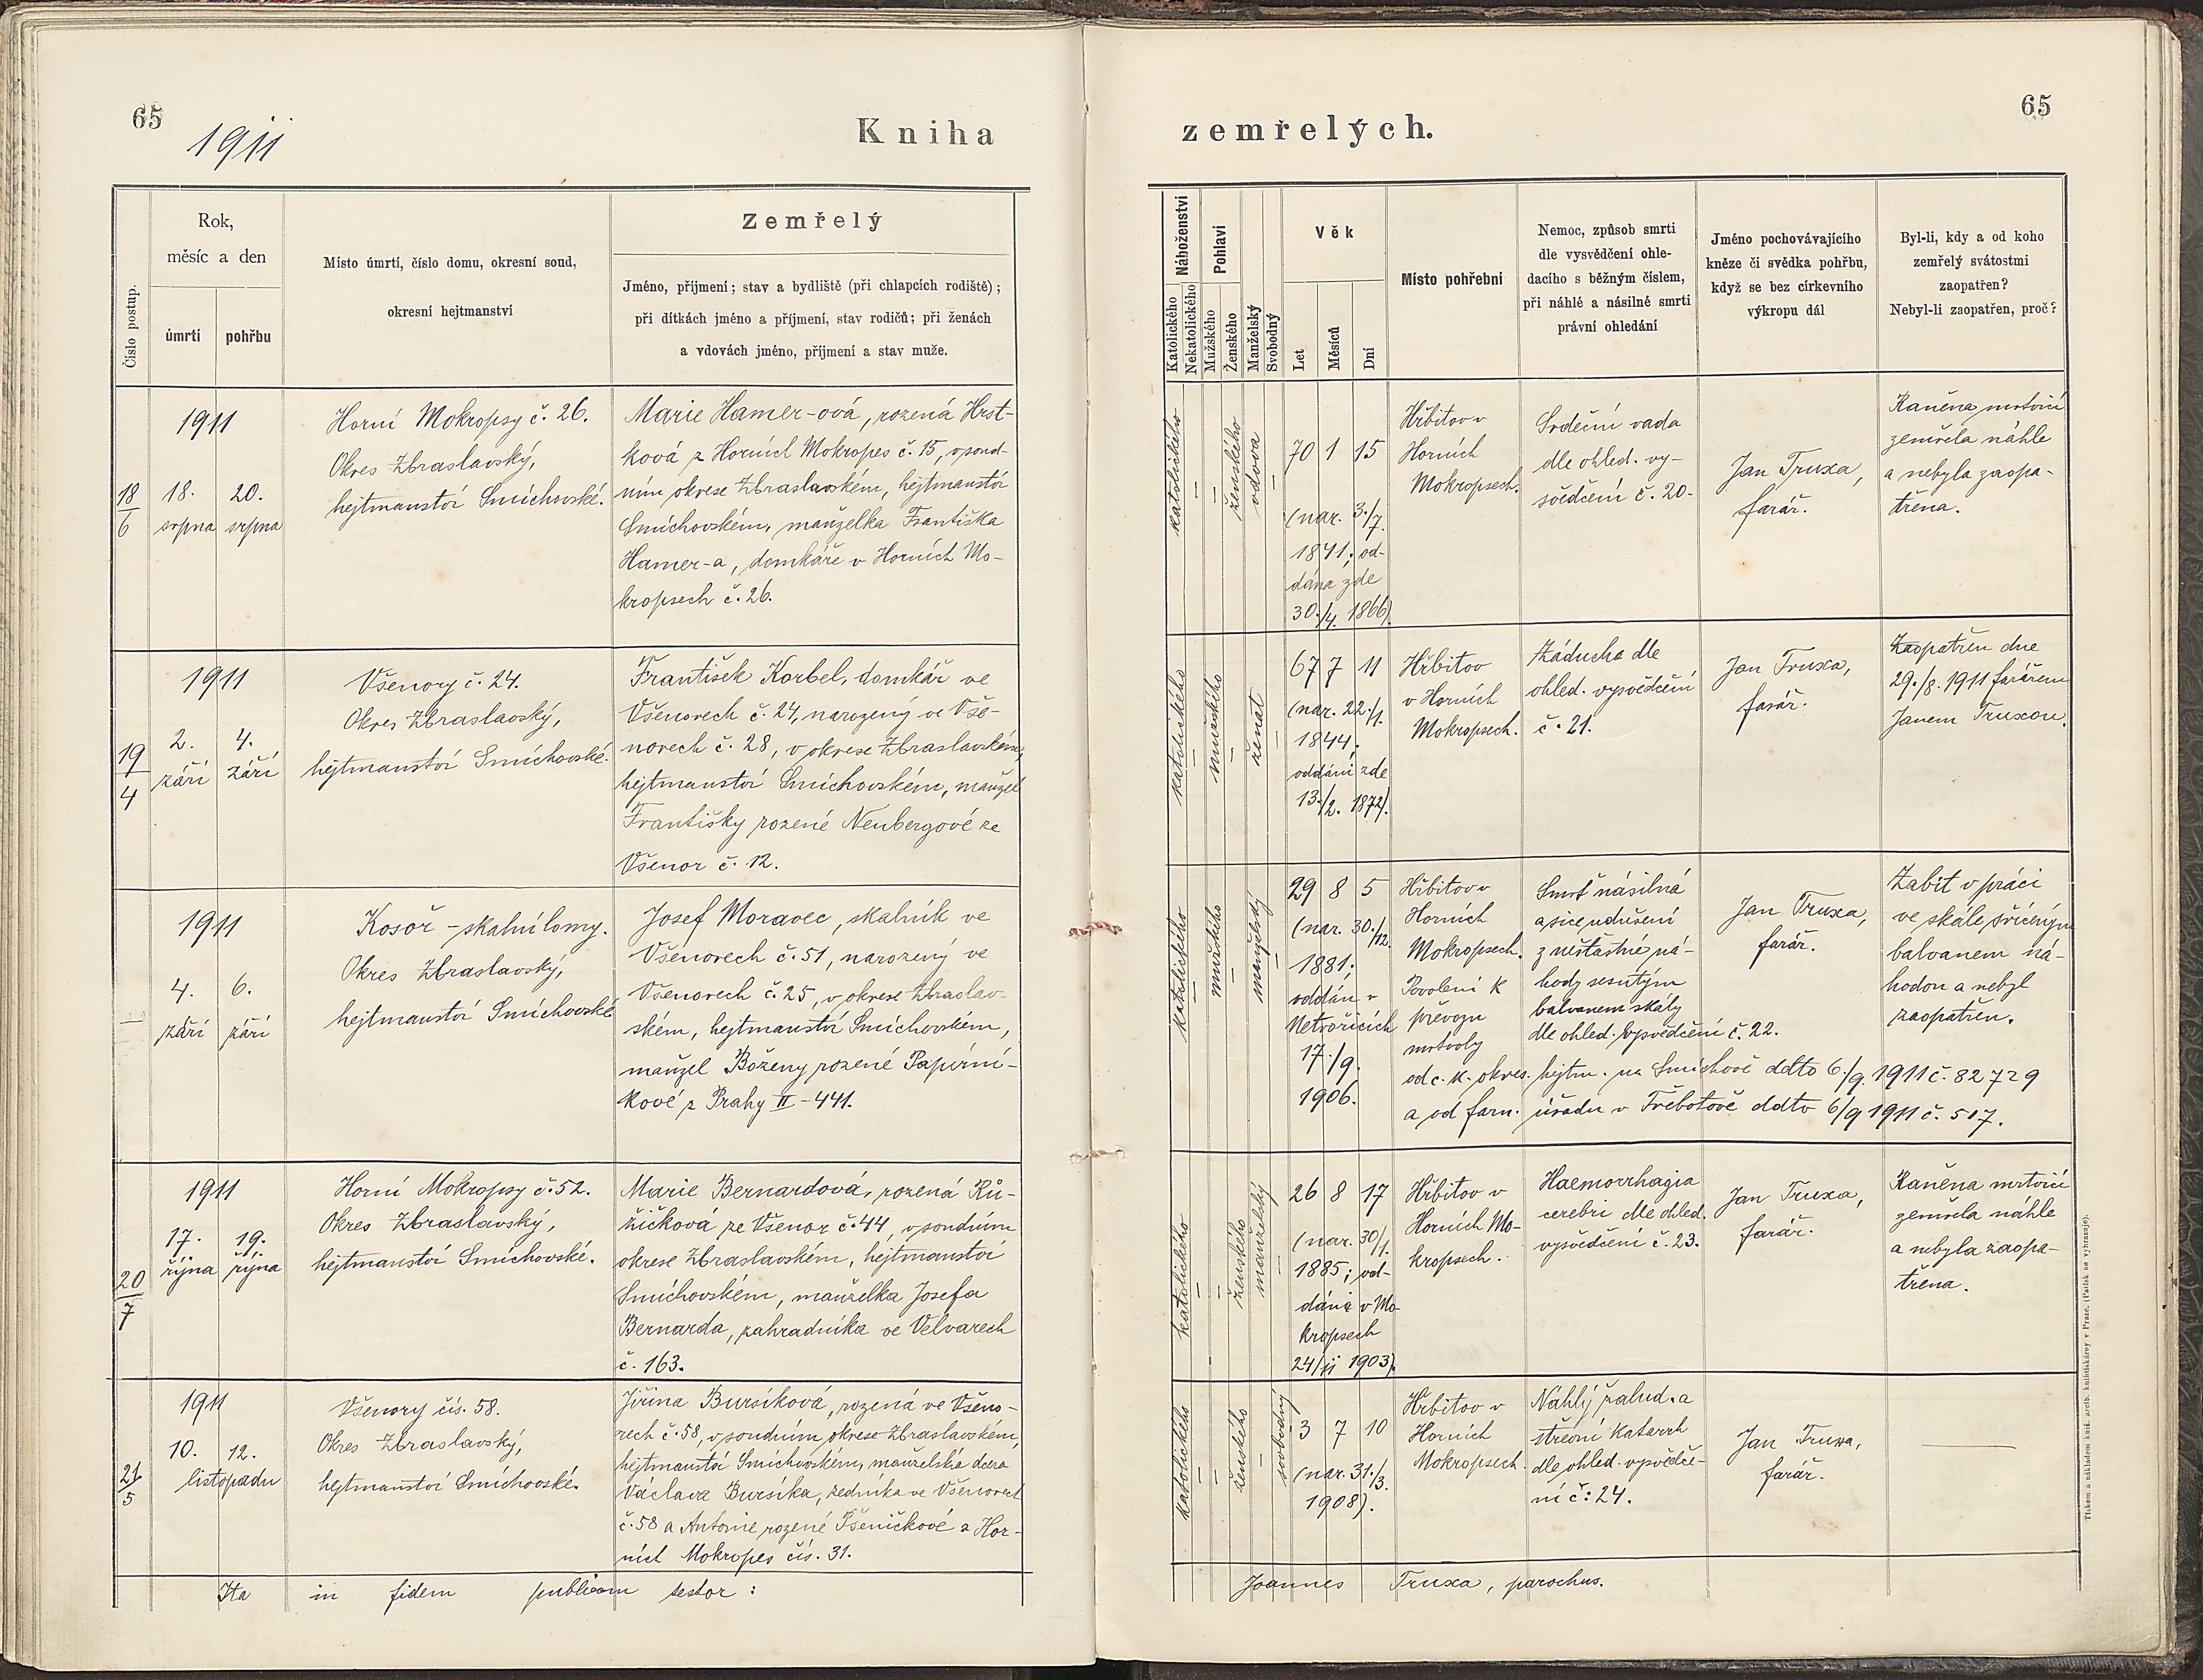 65
1911
Kniha
Číslo postup.
Rok,
měsíc a den
úmrtí
pohřbu
Místo úmrtí, číslo domu, okresní soud,
okresní hejtmanství
Zemřelý
Jméno, příjmení; stav a bydliště (při chlapcích rodiště);
při dítkách jméno a příjmení, stav rodičů; při ženách
a vdovách jméno, příjmení a stav muže.
18
6
1911
18. 20.
srpna srpna
Horní Mokropsy č. 26.
Okres Zbraslavský,
hejtmanství Smíchovské.
Marie Hamer-ová, rozená Hrst-
ková z Horních Mokropes č. 15, v soud-
ním okrese Zbraslavském, hejtmanství
Smíchovském, manželka Františka
Hamer-a, domkáře v Horních Mo-
kropsech č. 26.
19
4
1911
2. 4.
září září
Všenory č. 24.
Okres Zbraslavský,
hejtmanství Smíchovské.
František Korbel, domkář ve
Všenorech č. 24, narozený ve Vše-
norech č. 28, v okrese Zbraslavském,
hejtmanství Smíchovském, manžel
Františky rozené Neubergové ze
Všenor č. 12.
1911
4. 6.
září září
Kosoř - skalní lomy.
Okres Zbraslavský,
hejtmanství Smíchovské
Josef Moravec, skalník ve
Všenorech č. 51, narozený ve
Všenorech č. 25, v okrese Zbraslav-
ském, hejtmanství Smíchovském,
manžel Boženy rozené Papírní-
kové z Prahy II - 441.
20
7
1911
17. 19.
října října
Horní Mokropsy č. 52.
Okres Zbraslavský,
hejtmanství Smíchovské.
Marie Bernardová, rozená Rů-
žičková ze Všenor č. 44, v soudním
okrese Zbraslavském, hejtmanství
Smíchovském, manželka Josefa
Bernarda, zahradníka ve Velvarech
č. 163.
21
5
1911
10. 12.
listopadu
Všenory čís. 58.
Okres Zbraslavský,
hejtmanství Smíchovské.
Jiřina Bursíková, rozená ve Všeno-
rech č. 58, v soudním okrese Zbraslavském,
hejtmanství Smíchovském, manželská dcera
Václava Bursíka, zedníka ve Všenorech
č. 58 a Antonie rozené Pšeničkové z Hor-
ních Mokropes čís. 31.
Ita in fidem publicam testor:
65
zemřelých.
Náboženství
Katolického
Nekatolického
Pohlaví
Mužského
Ženského
Manželský
Svobodný
Věk
Let
Měsíců
Dní
Místo pohřební
Nemoc, způsob smrti
dle vysvědčení ohle-
dacího s běžným číslem,
při náhlé a násilné smrti
právní ohledání
Jméno pochovávajícího
kněze či svědka pohřbu,
když se bez církevního
výkropu dál
Byl-li, kdy a od koho
zemřelý svátostmi
zaopatřen?
Nebyl-li zaopatřen, proč?
katolického
ženského
vdova
70 1 15
(nar. 3./7.
1841; od-
dána zde
30./4. 1866).
Hřbitov v
Horních
Mokropsech.
Srdeční vada
dle ohled. vy-
svědčení č. 20.
Jan Truxa,
farář.
Raněna mrtvicí
zemřela náhle
a nebyla zaopa-
třena.
katolického
mužského
ženat
67 7 11
(nar. 22./1.
1844;
oddáni zde
13./2. 1872).
Hřbitov
v Horních
Mokropsech.
Záducha dle
ohled. vysvědčení
č. 21.
Jan Truxa,
farář.
Zaopatřen dne
29./8. 1911 farářem
Janem Truxou.
katolického
mužského
manželský
29 8 5
(nar. 30./12.
1881;
oddán v
Netvořicích
17./9.
1906.
Hřbitov v
Horních
Mokropsech.
Povolení k
převozu
mrtvoly
Smrť násilná
a sice udušení
z nešťastné ná-
hody sesutým
balvanem skály
dle ohled. vysvědčení č. 22.
od c. k. okres. hejtm. na Smíchově ddto 6./9. 1911 č. 82729
a od farn. úřadu v Třebotově ddto 6/9 1911 č. 517.
Jan Truxa,
farář.
Zabit v práci
ve skále sříceným
balvanem ná-
hodou a nebyl
zaopatřen.
katolického
ženského
manželský
26 8 17
(nar. 30/1.
1885; od-
dáni v Mo-
kropsech
24/11 1903).
Hřbitov v
Horních Mo-
kropsech.
Haemorrhagia
cerebri dle ohled.
vysvědčení č. 23.
Jan Truxa,
farář.
Raněna mrtvicí
zemřela náhle
a nebyla zaopa-
třena.
katolického
ženského
svobodný
3 7 10
(nar. 31./3.
1908).
Hřbitov v
Horních
Mokropsech.
Náhlý žalud. a
střevní katarrh
dle ohled. vysvědče-
ní č: 24.
Jan Truxa,
farář.
Joannes Truxa, parochus.
Tiskem a nákladem kníž. arcib. knihtiskárny v Praze. (Patisk se vyhrazuje).